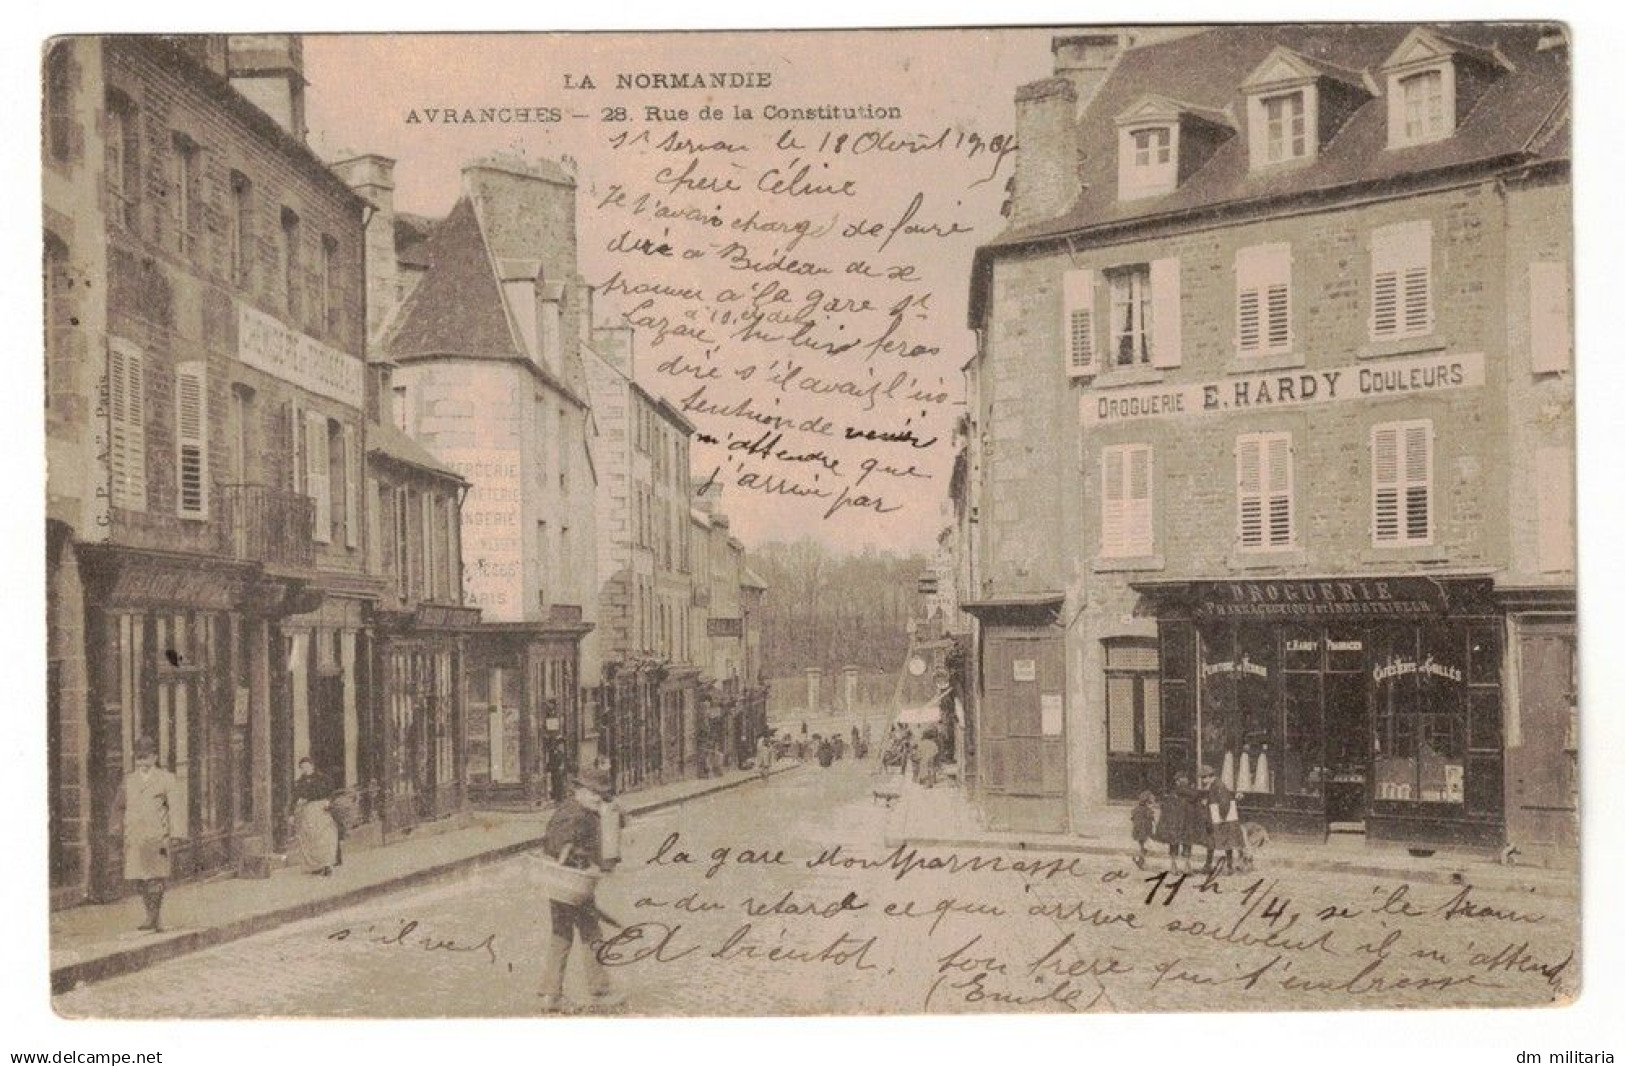 LA NORMANDIE
AVRANCHES — 28. Rue de la Constitution
St Servan le 18 Avril
chère Céline
Je t'avais chargé de faire
dire à Bideau de se
trouver à la gare St
à 10
Lazare, tu lui feras
dire s'il avait l'in-
tention de venir
m'attendre que
j'arrive par
la gare Montparnasse a 11h 1/4, si le train
a du retard ce qui arrive souvent il m'attend
s'il veut,
Et bientot. ton frère qui t'embrasse
(Emile)
C. P. A" Paris
MERCERIE
PARIS
DROGUERIE E. HARDY COULEURS
DROGUERIE
PHARMACEUTIQUE ET INDUSTRIELLE
E. HARDY PHARMACIEN
dm militaria
www.delcampe.net